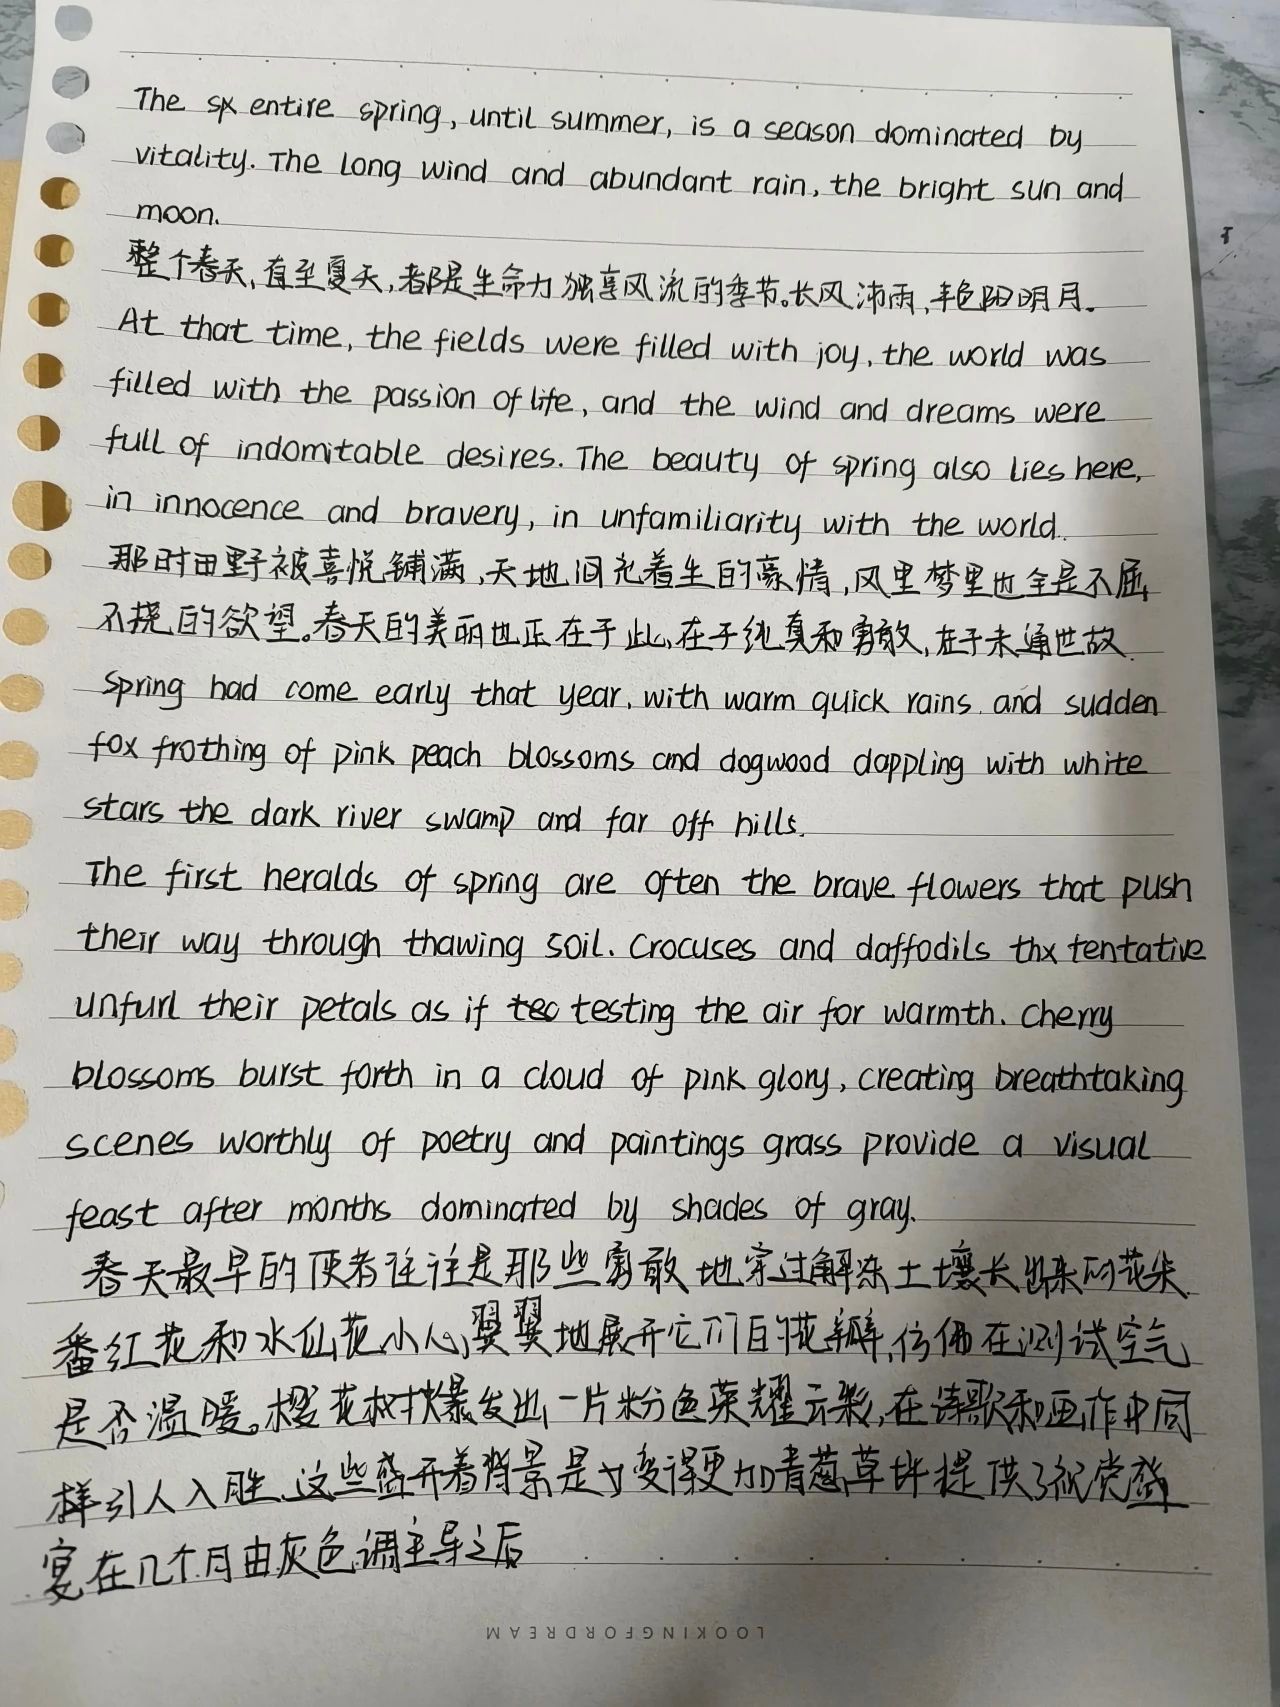 The sp entire spring, until summer, is a season dominated by
vitality. The long wind and abundant rain, the bright sun and
moon.
整个春天,直至夏天,都是生命力独享风流的季节。长风沛雨,艳阳明月。
At that time, the fields were filled with joy, the world was
filled with the passion of life, and the wind and dreams were
full of indomitable desires. The beauty of spring also lies here,
in innocence and bravery, in unfamiliarity with the world.
那时田野被喜悦铺满,天地间充着生的豪情,风里梦里也全是不屈
不挠的欲望。春天的美丽也正在于此,在于纯真和勇敢,在于未通世故.
spring had come early that year, with warm quick rains and sudden
fox frothing of pink peach blossoms and dogwood dappling with white
stars the dark river swamp and far off hills.
The first heralds of spring are often the brave flowers that push
their way through thawing soil. Crocuses and daffodils tentative
unfurl their petals as if testing the air for warmth. Cherry
blossoms burst forth in a cloud of pink glory, creating breathtaking
scenes worthly of poetry and paintings grass provide a visual
feast after months dominated by shades of gray.
春天最早的使者往往是那些勇敢地穿过解冻土壤长出来的花朵
番红花和水仙花小心翼翼地展开它们的花瓣,仿佛在测试空气
是否温暖。樱花树爆发出一片粉色荣耀云彩,在诗歌和画作中同
样引人入胜.这些盛开着背景是变得更加青葱草坪提供了视觉盛
宴在几个月由灰色调主导之后
LOOKINGFORDREAM